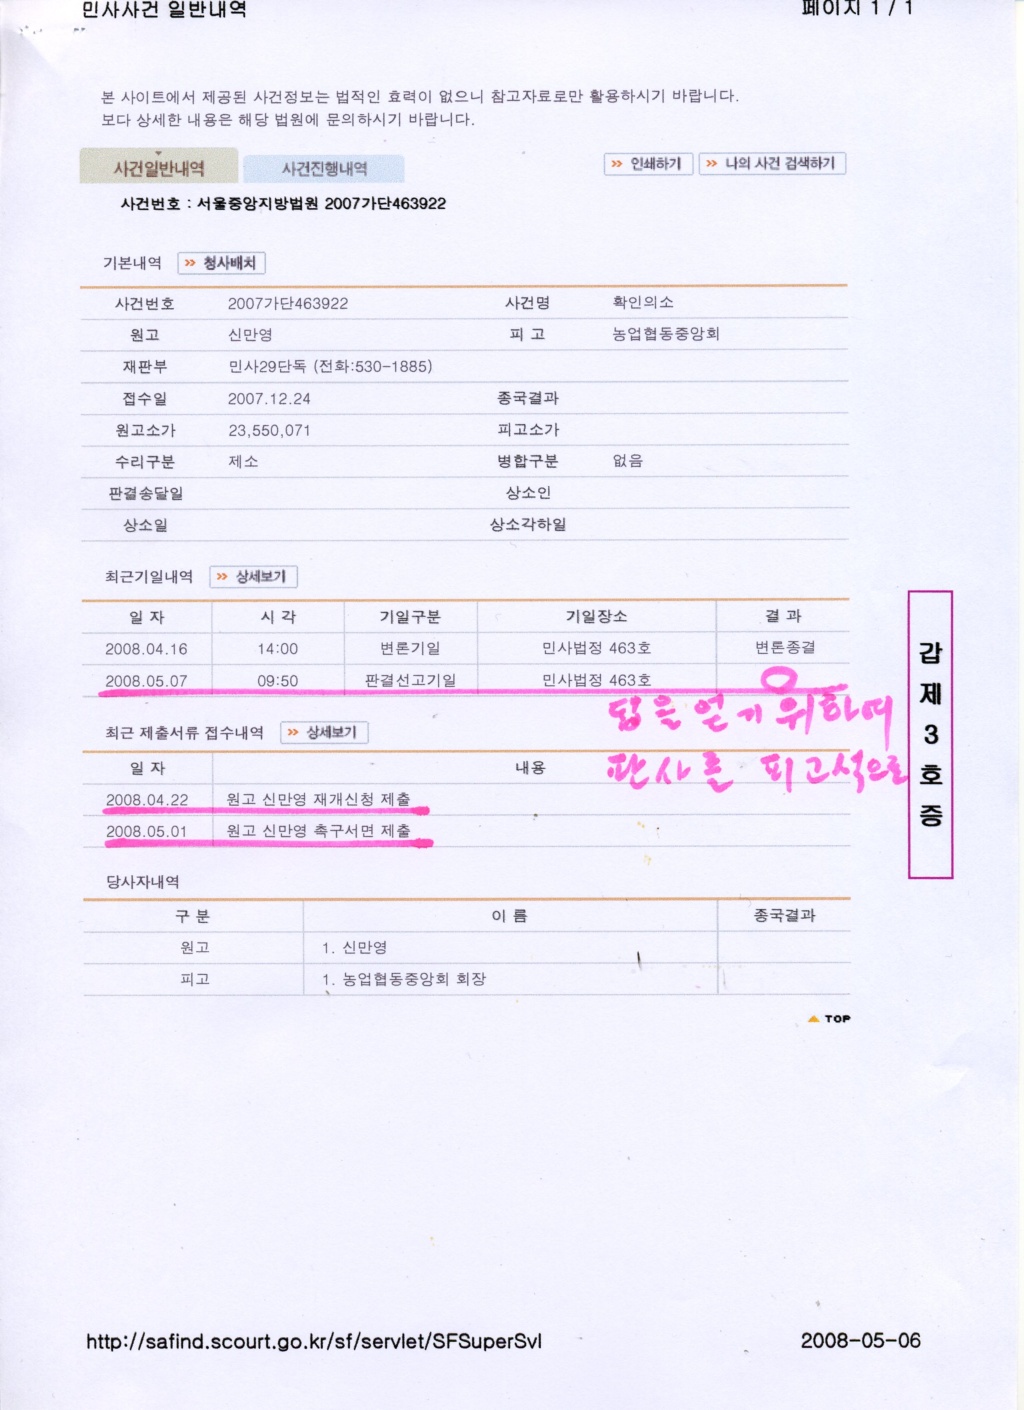 민사사건 일반내역
페이지 1 / 1
본 사이트에서 제공된 사건정보는 법적인 효력이 없으니 참고자료로만 활용하시기 바랍니다.
보다 상세한 내용은 해당 법원에 문의하시기 바랍니다.
사건일반내역 사건진행내역 » 인쇄하기 » 나의 사건 검색하기
사건번호 : 서울중앙지방법원 2007가단463922
기본내역 » 청사배치
사건번호 2007가단463922 사건명 확인의소
원고 신만영 피고 농업협동중앙회
재판부 민사29단독 (전화:530-1885)
접수일 2007.12.24 종국결과
원고소가 23,550,071 피고소가
수리구분 제소 병합구분 없음
판결송달일 상소인
상소일 상소각하일
최근기일내역 » 상세보기
일자 시각 기일구분 기일장소 결과
2008.04.16 14:00 변론기일 민사법정 463호 변론종결
2008.05.07 09:50 판결선고기일 민사법정 463호
답을 얻기 위하여
판사를 피고석으로
최근 제출서류 접수내역 » 상세보기
일자 내용
2008.04.22 원고 신만영 재개신청 제출
2008.05.01 원고 신만영 촉구서면 제출
당사자내역
구분 이름 종국결과
원고 1. 신만영
피고 1. 농업협동중앙회 회장
TOP
갑제3호증
http://safind.scourt.go.kr/sf/servlet/SFSuperSvl
2008-05-06